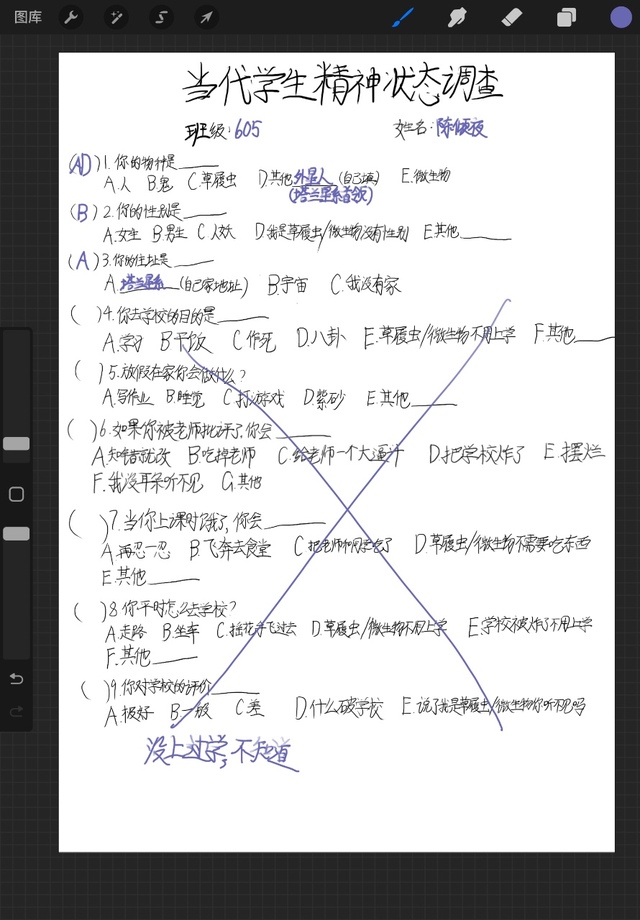 图库
当代学生精神状态调查
班级:605 姓名:陈倾夜
(AD)1.你的物种是____
A.人 B.鬼 C.草履虫 D.其他外星人(自己填) E.微生物
(塔兰星系首领)
(B)2.你的性别是____
A.女生 B.男生 C.人妖 D.我是草履虫/微生物没有性别 E.其他____
(A)3.你的住址是____
A.塔兰星系(自己家地址) B.宇宙 C.我没有家
( )4.你去学校的目的是____
A.学习 B.干饭 C.作死 D.八卦 E.草履虫/微生物不用上学 F.其他____
( )5.放假在家你会做什么?
A.写作业 B.睡觉 C.打游戏 D.紫砂 E.其他____
( )6.如果你被老师批评了,你会____
A.知错就改 B.吃掉老师 C.给老师一个大逼斗 D.把学校炸了 E.摆烂
F.我没耳朵听不见 G.其他
( )7.当你上课时饿了,你会____
A.再忍一忍 B.飞奔去食堂 C.把老师和同学吃了 D.草履虫/微生物不需要吃东西
E.其他____
( )8.你平时怎么去学校?
A.走路 B.坐车 C.摇花手飞过去 D.草履虫/微生物不用上学 E.学校被炸了不用上学
F.其他____
( )9.你对学校的评价____
A.极好 B.一般 C.差 D.什么破学校 E.说了我是草履虫/微生物你听不见吗
没上过学,不知道